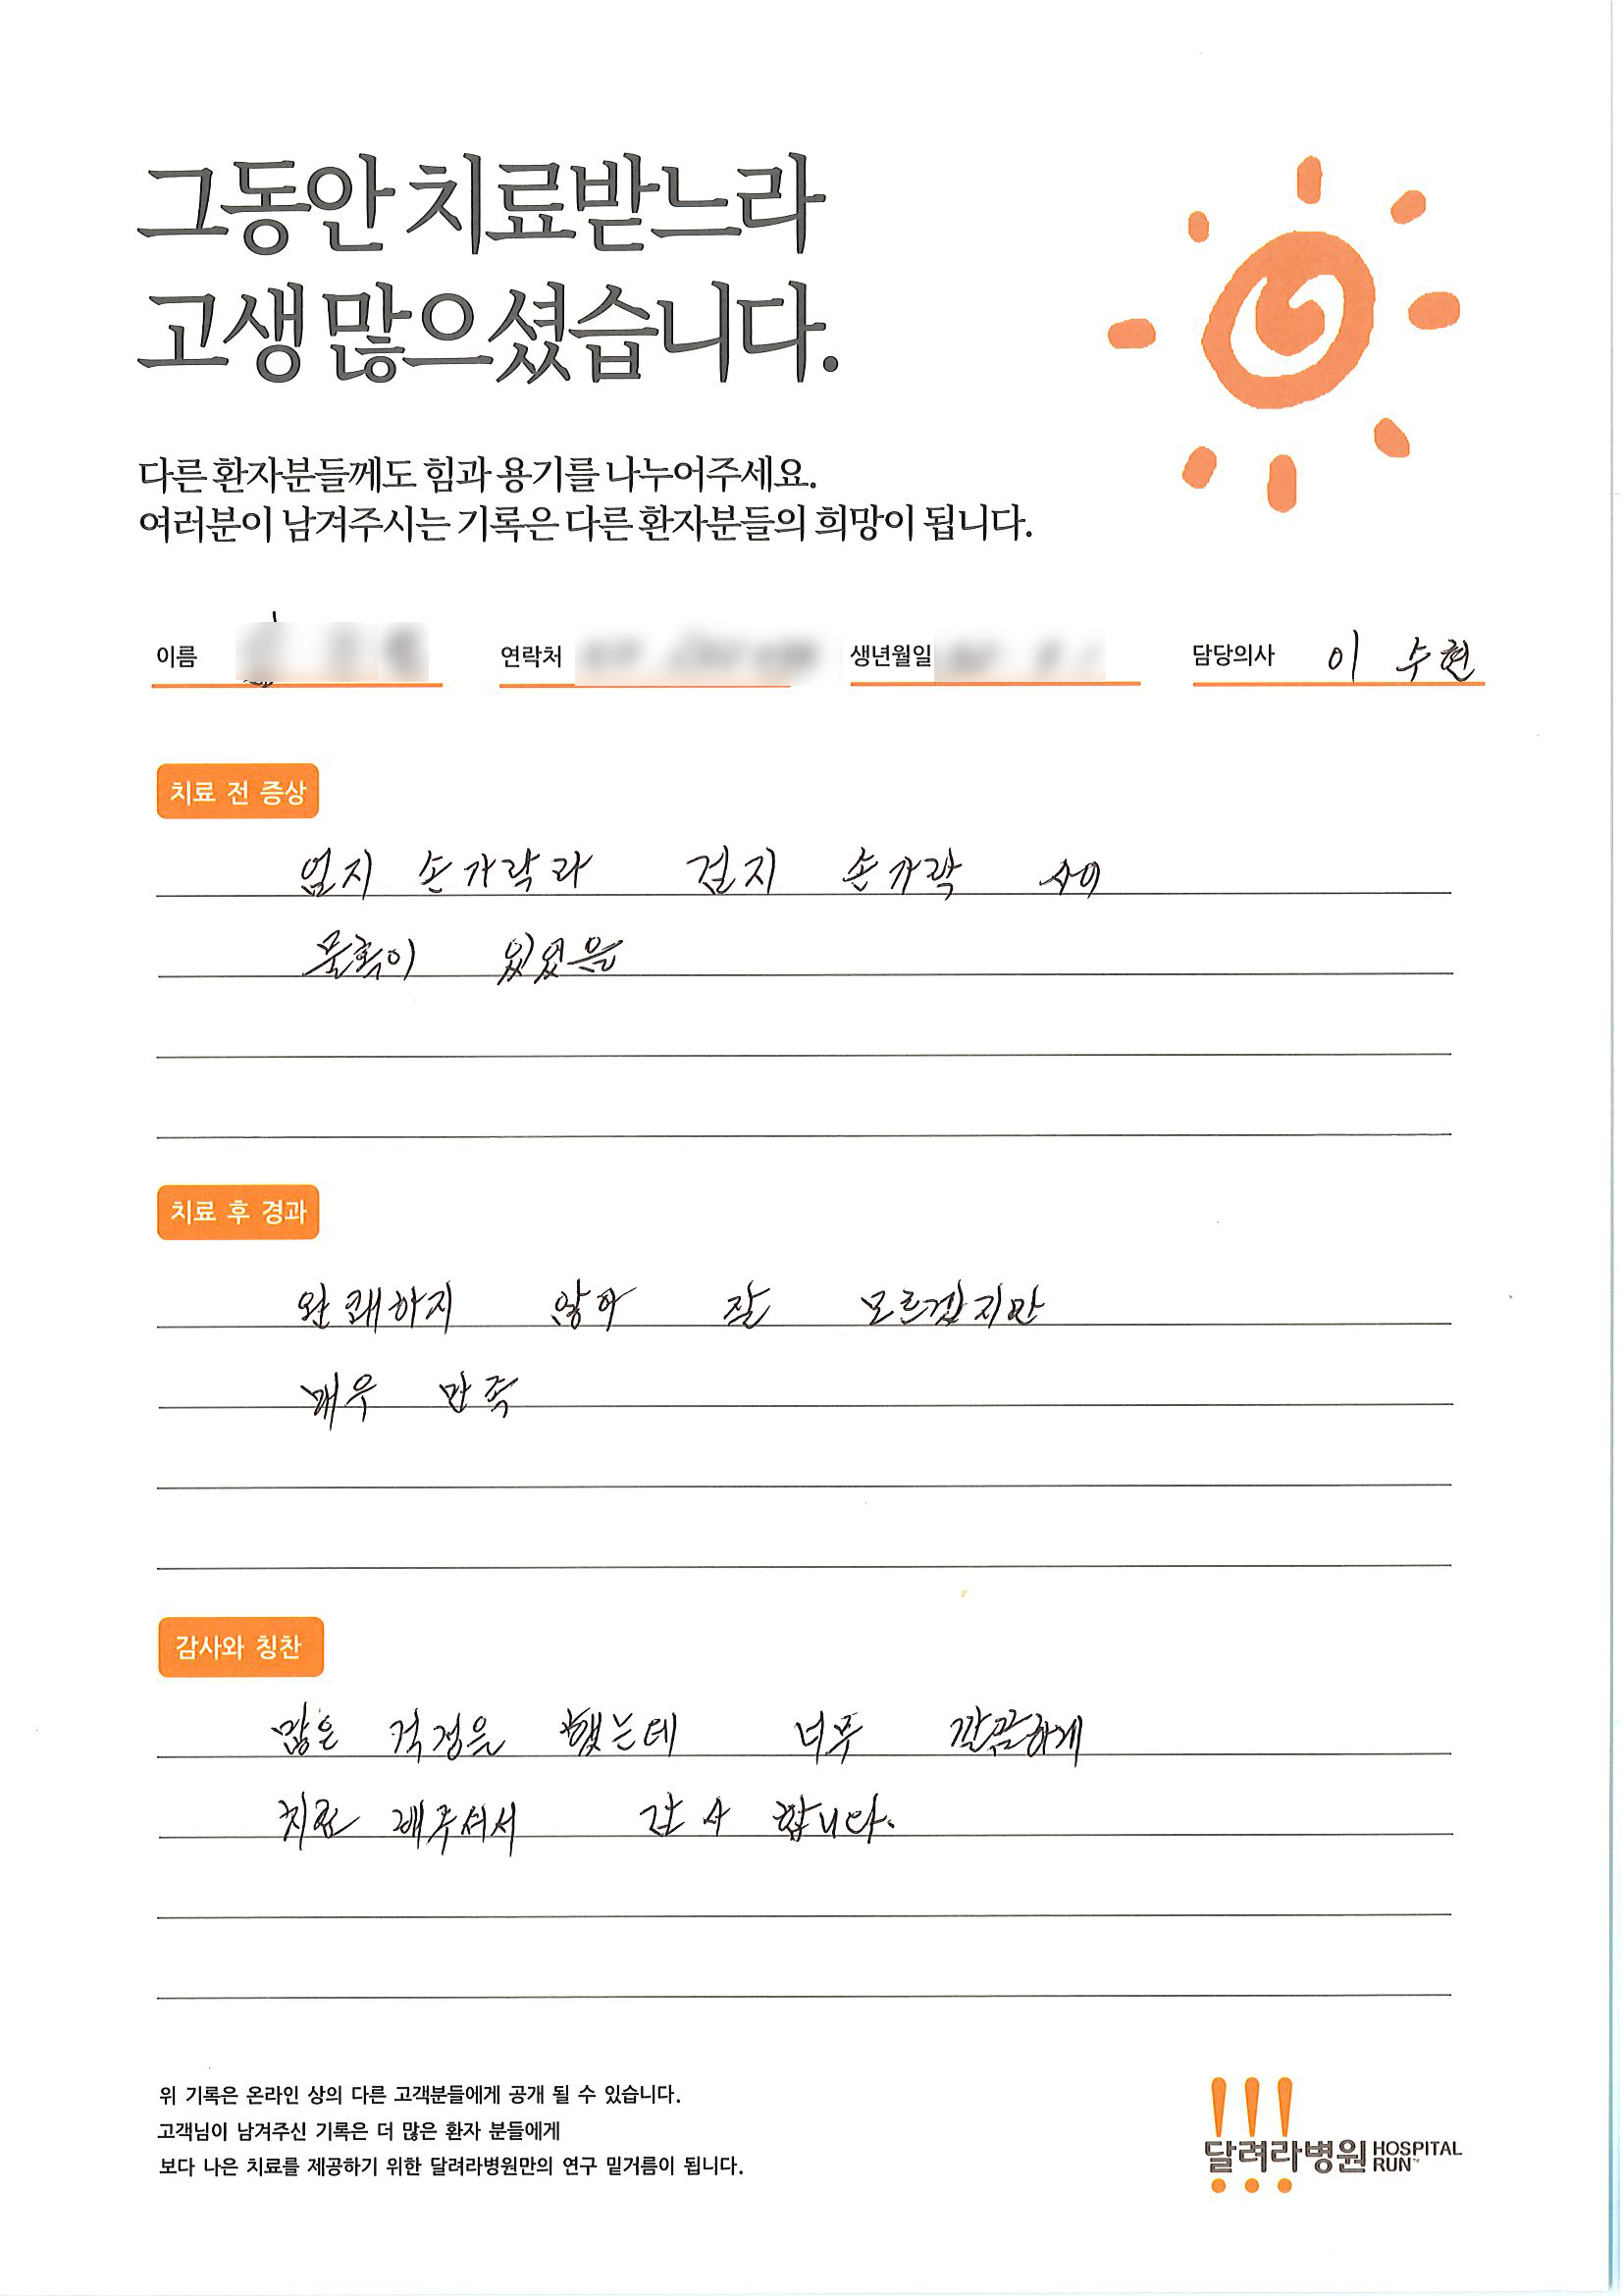 그동안 치료받느라
고생 많으셨습니다.
다른 환자분들께도 힘과 용기를 나누어주세요.
여러분이 남겨주시는 기록은 다른 환자분들의 희망이 됩니다.
이름 연락처 생년월일 담당의사 이 수현
치료 전 증상
엄지 손가락과 검지 손가락 사이
물혹이 있었음
치료 후 경과
완쾌하지 않아 잘 모르겠지만
매우 만족
감사와 칭찬
많은 걱정을 했는데 너무 깔끔하게
치료 해주셔서 감사 합니다.
위 기록은 온라인 상의 다른 고객분들에게 공개 될 수 있습니다.
고객님이 남겨주신 기록은 더 많은 환자 분들에게
보다 나은 치료를 제공하기 위한 달려라병원만의 연구 밑거름이 됩니다.
달려라병원 HOSPITAL
RUN™